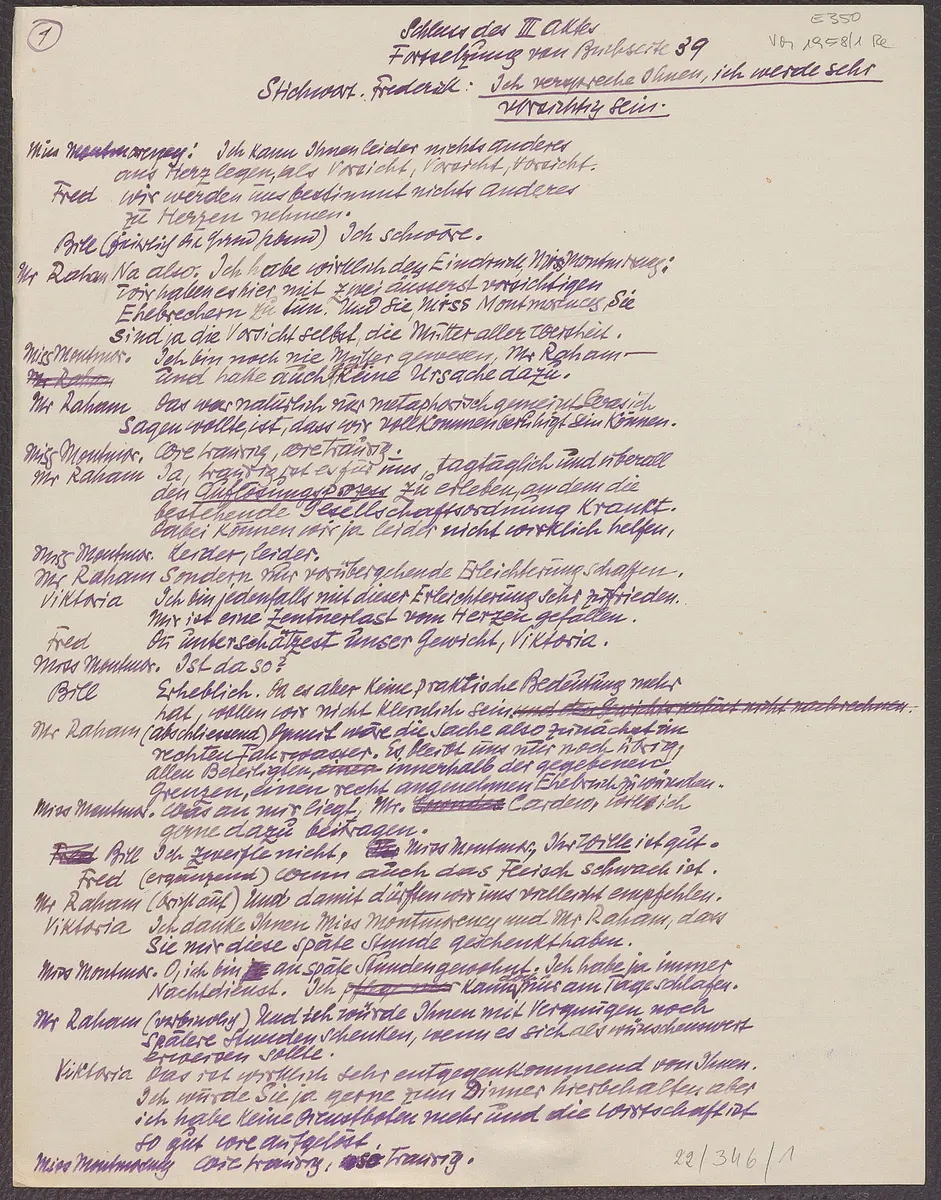 1
Schluss des III Aktes
E350
Fortsetzung von Buchseite 39
Vor 1958/1 Re
Stichwort. Frederick: Ich verspreche Ihnen, ich werde sehr
vorsichtig sein.
Miss Montmorency: Ich kann Ihnen leider nichts anderes
ans Herz legen, als Vorsicht, Vorsicht, Vorsicht.
Fred wir werden uns bestimmt nichts anderes
zu Herzen nehmen.
Bill (feierlich die Hand hebend) Ich schwöre.
Mr Raham Na also. Ich habe wirklich den Eindruck, Miss Montmorency:
wir haben es hier mit zwei äusserst vorsichtigen
Ehebrechern zu tun. Und Sie, Miss Montmorency, Sie
sind ja die Vorsicht selbst, die Mutter aller Weisheit.
Miss Montmor. Ich bin noch nie Mutter gewesen, Mr Raham—
Mr Raham und habe auch keine Ursache dazu.
Mr Raham Das war natürlich nur metaphorisch gemeint. Was ich
sagen wollte, ist, dass wir vollkommen beruhigt sein können.
Miss Montmor. Wie traurig, wie traurig.
Mr Raham Ja, traurig ist es für uns, tagtäglich und überall
den Auflösungsprozess zu erleben, an dem die
bestehende Gesellschaftsordnung krankt.
Dabei können wir ja leider nicht wirklich helfen,
Miss Montmor. Leider, leider.
Mr Raham Sondern nur vorübergehende Erleichterung schaffen.
Viktoria Ich bin jedenfalls mit dieser Erleichterung sehr zufrieden.
Mir ist eine Zentnerlast vom Herzen gefallen.
Fred Du unterschätzest unser Gewicht, Viktoria.
Miss Montmor. Ist da so?
Bill Erheblich. Da es aber keine praktische Bedeutung mehr
hat, wollen wir nicht kleinlich sein und den Gewichtsverlust nicht nachrechnen.
Mr Raham (abschliessend) Damit wäre die Sache also zunächst im
rechten Fahrwasser. Es bleibt uns nur noch übrig,
allen Beteiligten, einen innerhalb der gegebenen
Grenzen, einen recht angenehmen Ehebruch zu wünschen.
Miss Montmor. Was an mir liegt, Mr. Cardew, will ich
gerne dazu beitragen.
Fred Bill Ich zweifle nicht, Miss Montmor, Ihr Wille ist gut.
Fred (ergänzend) wenn auch das Fleisch schwach ist.
Mr Raham (bricht auf) Und damit dürfen wir uns vielleicht empfehlen.
Viktoria Ich danke Ihnen Miss Montmorency und Mr Raham, dass
Sie mir diese späte Stunde geschenkt haben.
Miss Montmor. O, ich bin an späte Stunden gewohnt. Ich habe ja immer
Nachtdienst. Ich pflege nur kann nur am Tage schlafen.
Mr Raham (verbindlich) Und ich würde Ihnen mit Vergnügen noch
spätere Stunden schenken, wenn es sich als wünschenswert
erweisen sollte.
Viktoria Das ist wirklich sehr entgegenkommend von Ihnen.
Ich würde Sie ja gerne zum Dinner hierbehalten aber
ich habe keine Dienstboten mehr und die Wirtschaft ist
so gut wie aufgelöst.
Miss Montmorency Wie traurig, wie traurig.
22/346/1